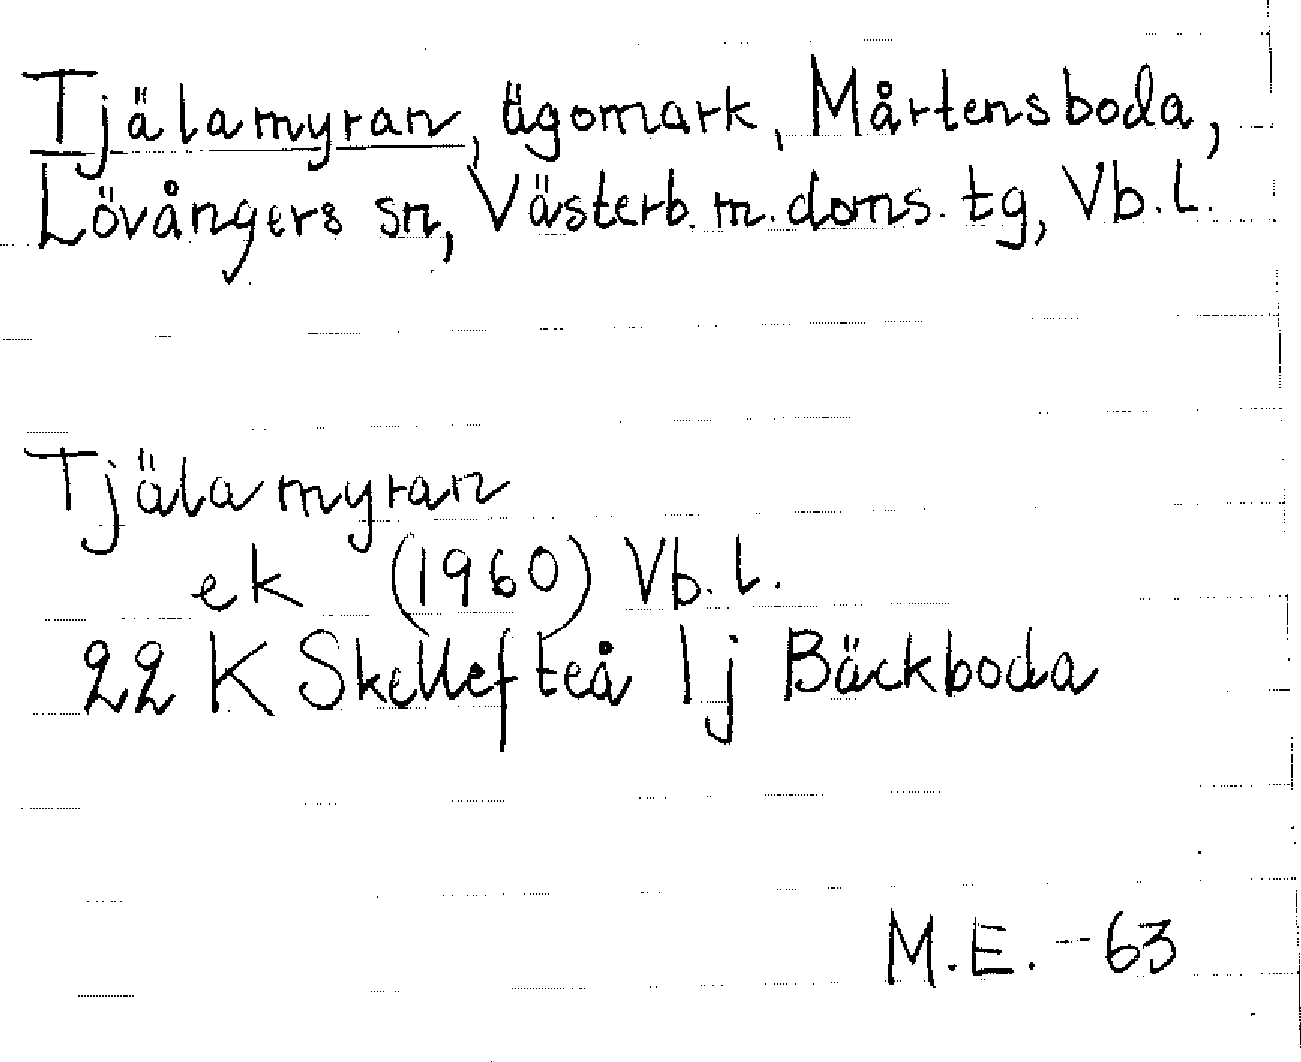 Tjälamyran, ägomark, Mårtensboda,
Lövångers sn, Västerb. m. doms. tg, Vb. l.
Tjälamyran
ek (1960) Vb. l.
22 K Skellefteå 1j Bäckboda
M.E. -63